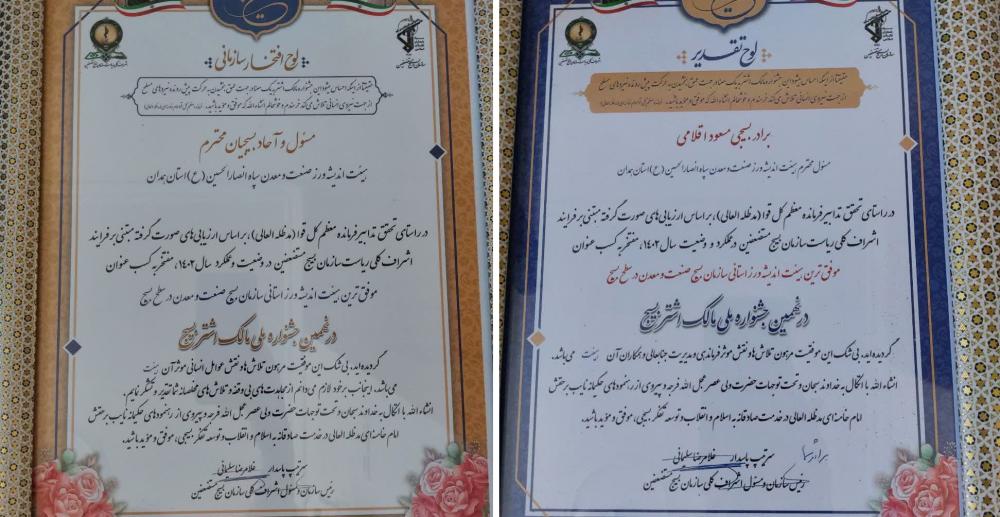 لوح افتخار سازمانی
حقیقتاً از اینکه احساس میشود این جشنواره مالک اشتر به یک معنا در جهت عمق بخشیدن به حرکت پیش رونده نیروهای مسلح
از جهت نیروی انسانی تلاش می کند خرسندم و خوشحالم انشاء الله که موفق و مؤید باشید.
مسئول و آحاد بسیجیان محترم
هیئت اندیشه ورز صنعت و معدن سپاه انصارالحسین (ع) استان همدان
در راستای تحقق تدابیر فرمانده معظم کل قوا (مدظله العالی)، بر اساس ارزیابی های صورت گرفته مبتنی بر فرایند
اشراف کلی ریاست سازمان بسیج مستضعفین در وضعیت و عملکرد سال ۱۴۰۲، مفتخر به کسب عنوان
موفق ترین هیئت اندیشه ورز استانی سازمان بسیج صنعت و معدن در سطح بسیج
در نهمین جشنواره ملی مالک اشتر بسیج
گردیده اید، بی شک این موفقیت مرهون تلاش ها و نقش عوامل انسانی موثر آن هیئت
می باشد، اینجانب بر خود لازم می دانم از مجاهدت های بی وقفه و تلاش های مخلصانه شما تقدیر و تشکر نمایم.
انشاء الله با اتکال به خداوند سبحان و تحت توجهات حضرت ولی عصر عجل الله فرجه و پیروی از رهنمودهای حکیمانه نایب برحقش
امام خامنه ای مدظله العالی در خدمت صادقانه به اسلام و انقلاب و توسعه تفکر بسیجی، موفق و مؤید باشید.
سرتیپ پاسدار غلامرضا سلیمانی
رئیس سازمان و مسئول اشراف کلی سازمان بسیج مستضعفین
لوح تقدیر
حقیقتاً از اینکه احساس میشود این جشنواره مالک اشتر به یک معنا در جهت عمق بخشیدن به حرکت پیش رونده نیروهای مسلح
از جهت نیروی انسانی تلاش می کند خرسندم و خوشحالم انشاء الله که موفق و مؤید باشید.
برادر بسیجی مسعود اقلامی
مسئول محترم هیئت اندیشه ورز صنعت و معدن سپاه انصارالحسین (ع) استان همدان
در راستای تحقق تدابیر فرمانده معظم کل قوا (مدظله العالی)، بر اساس ارزیابی های صورت گرفته مبتنی بر فرایند
اشراف کلی ریاست سازمان بسیج مستضعفین در عملکرد و وضعیت سال ۱۴۰۲، مفتخر به کسب عنوان
موفق ترین هیئت اندیشه ورز استانی سازمان بسیج صنعت و معدن در سطح بسیج
در نهمین جشنواره ملی مالک اشتر بسیج
گردیده اید، بی شک این موفقیت مرهون تلاش ها و نقش موثر فرماندهی و مدیریت جنابعالی و همکاران آن هیئت می باشد.
انشاء الله با اتکال به خداوند سبحان و تحت توجهات حضرت ولی عصر عجل الله فرجه و پیروی از رهنمودهای حکیمانه نایب برحقش
امام خامنه ای مدظله العالی در خدمت صادقانه به اسلام و انقلاب و توسعه تفکر بسیجی، موفق و مؤید باشید.
برادر شما
سرتیپ پاسدار غلامرضا سلیمانی
رئیس سازمان و مسئول اشراف کلی سازمان بسیج مستضعفین